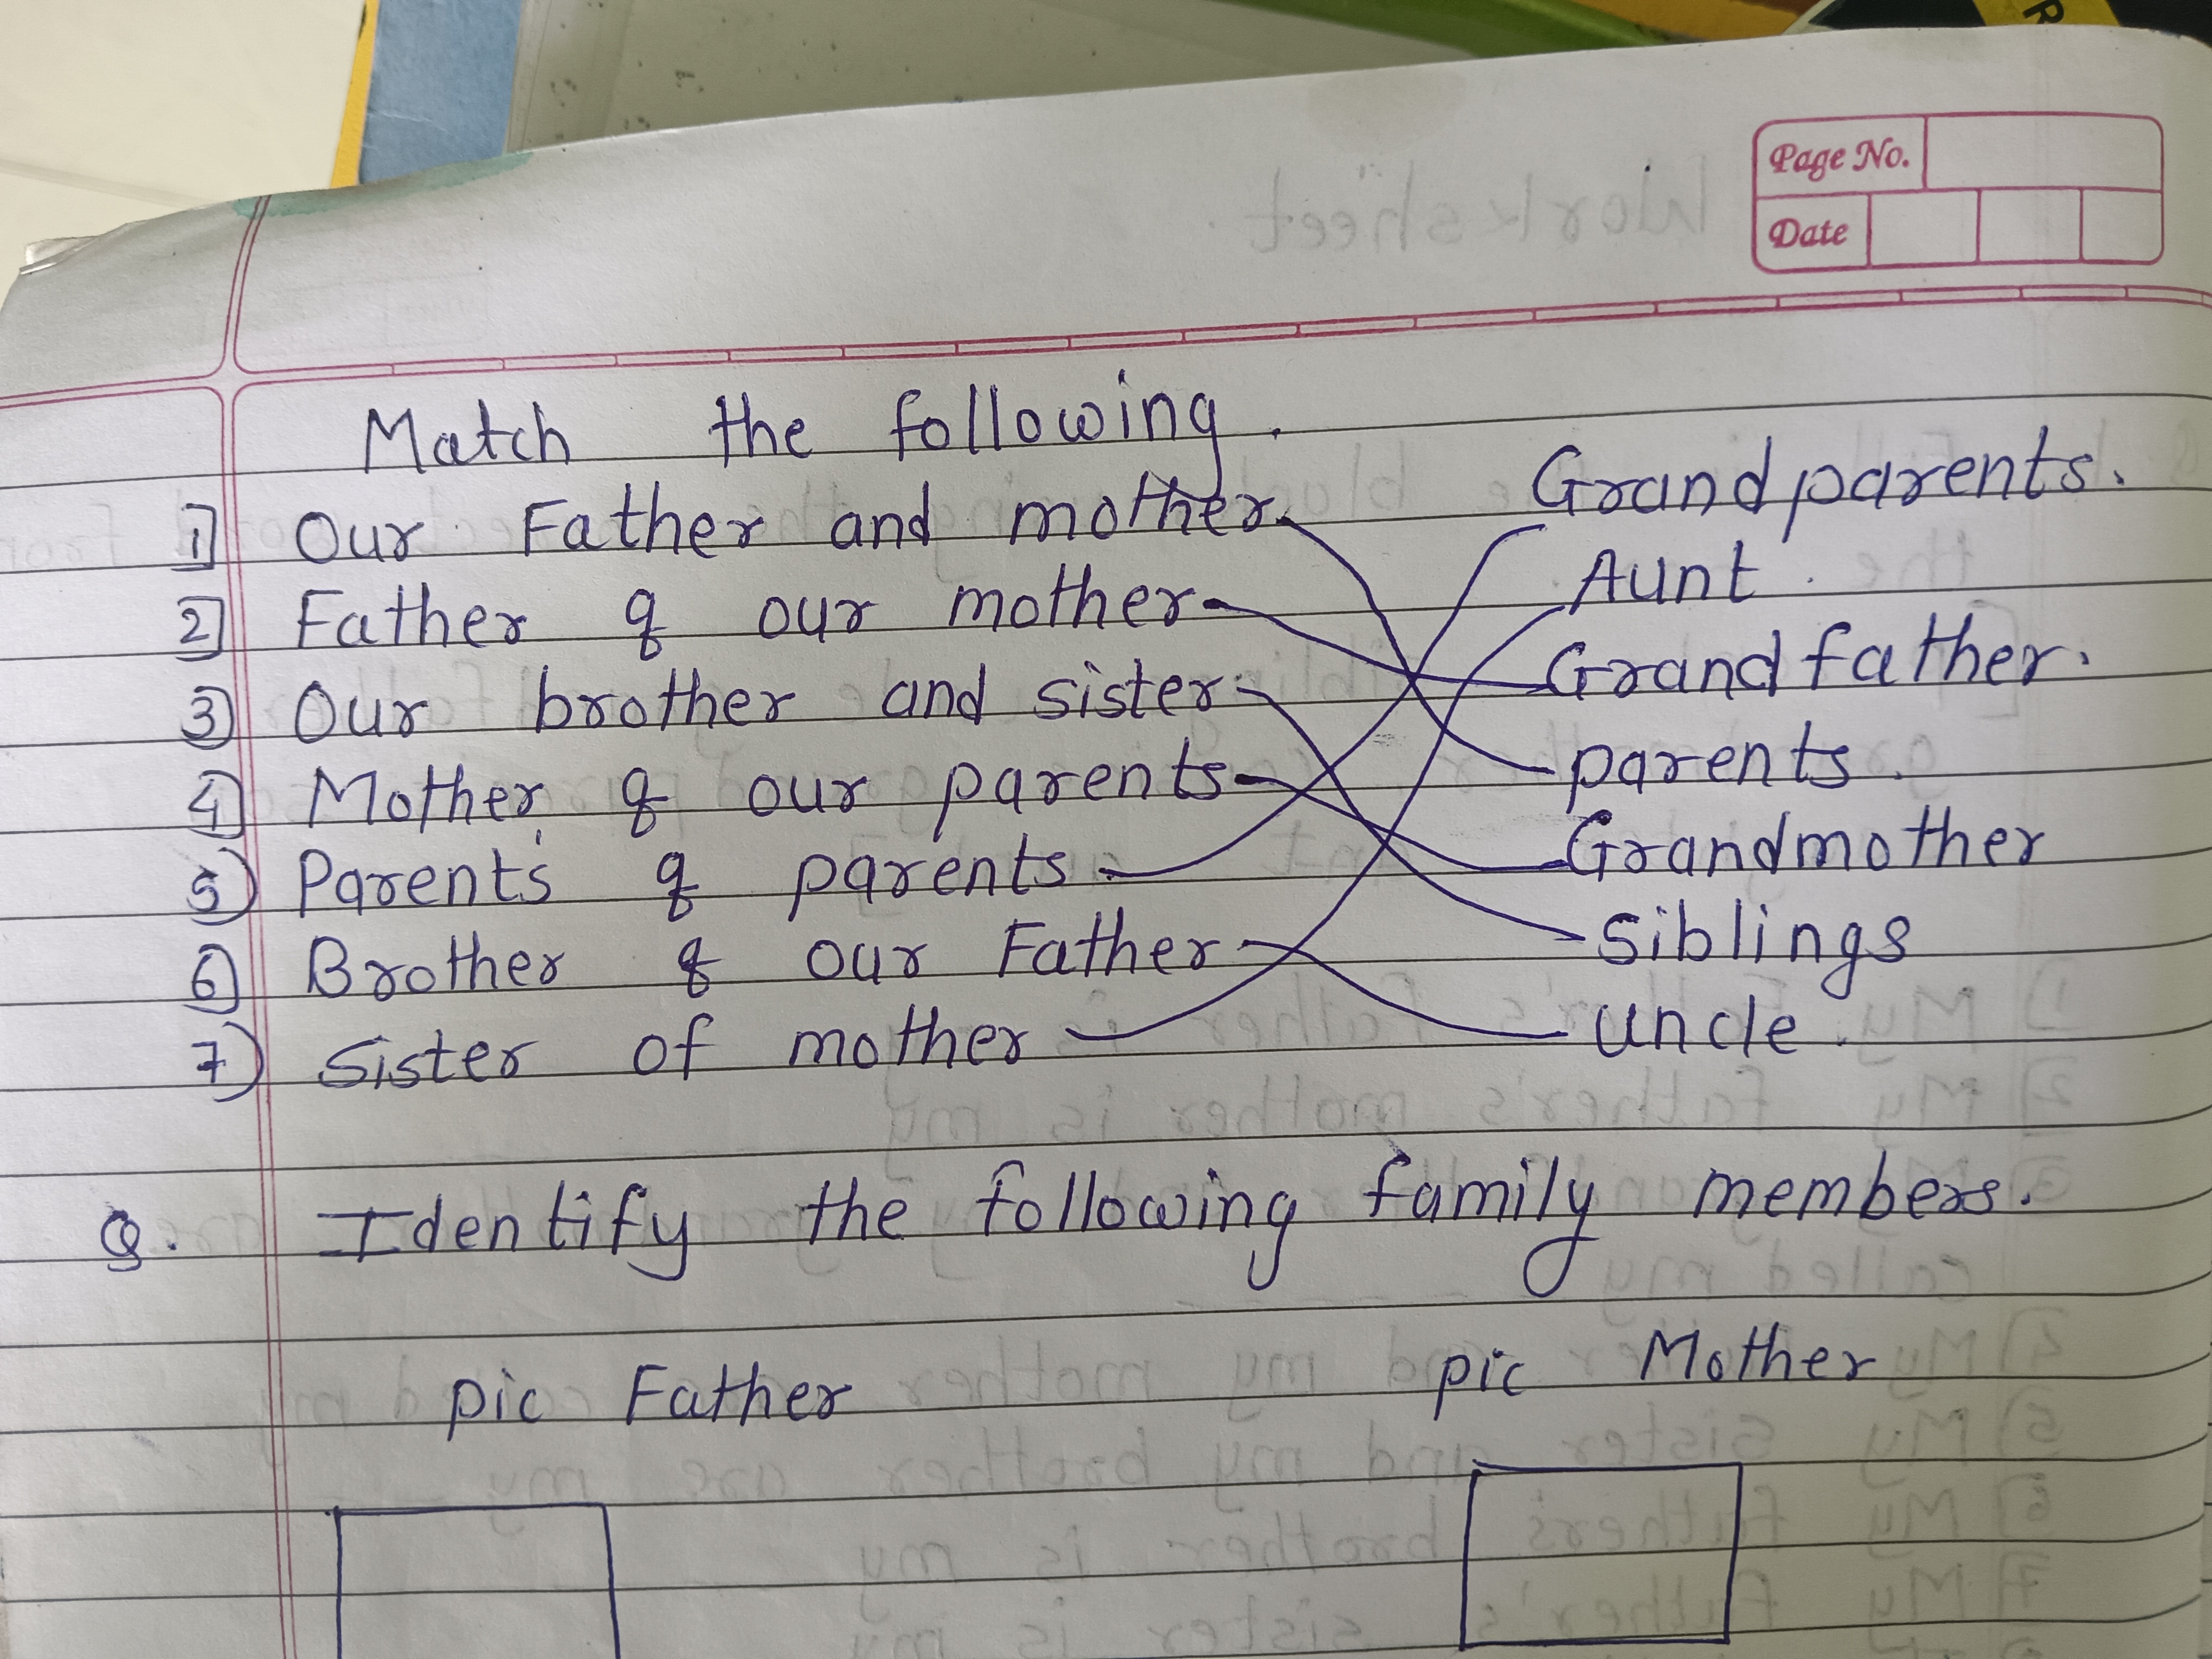 R
Page No.
Date
Match the following.
1] Our Father and mother. Grandparents.
2] Father of our mother Aunt.
3) Our brother and sister Grandfather.
4) Mother of our parents parents.
5) Parents of parents Grandmother
6) Brother of our Father siblings
7) Sister of mother uncle.
Q. Identify the following family members.
pic Father pic Mother
Worksheet.